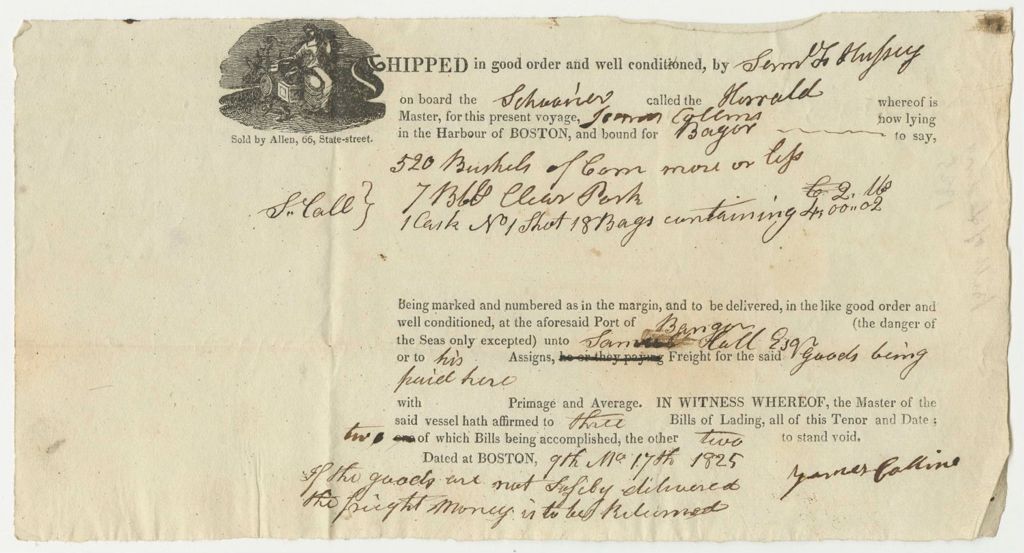 SHIPPED in good order and well conditioned, by Saml F Hussey
on board the Schooner called the Horrald whereof is
Master, for this present voyage, James Collins now lying
in the Harbour of BOSTON, and bound for Bagor to say,
Sold by Allen, 66, State-street.
520 Bushels of Corn more or less
7 Bbls Clear Pork
S. Hall } 1 Cask No 1 Shot 18 Bags containing C. 2. 16
4,00.02
Being marked and numbered as in the margin, and to be delivered, in the like good order and
well conditioned, at the aforesaid Port of Bangor (the danger of
the Seas only excepted) unto Samuel Hall Esqr
or to his Assigns, he or they paying Freight for the said goods being
paid here
with Primage and Average. IN WITNESS WHEREOF, the Master of the
said vessel hath affirmed to three Bills of Lading, all of this Tenor and Date;
two one of which Bills being accomplished, the other two to stand void.
Dated at BOSTON, 9th Mo 17th 1825
James Colline
If the goods are not Safely delivered
the freight money is to be Returned